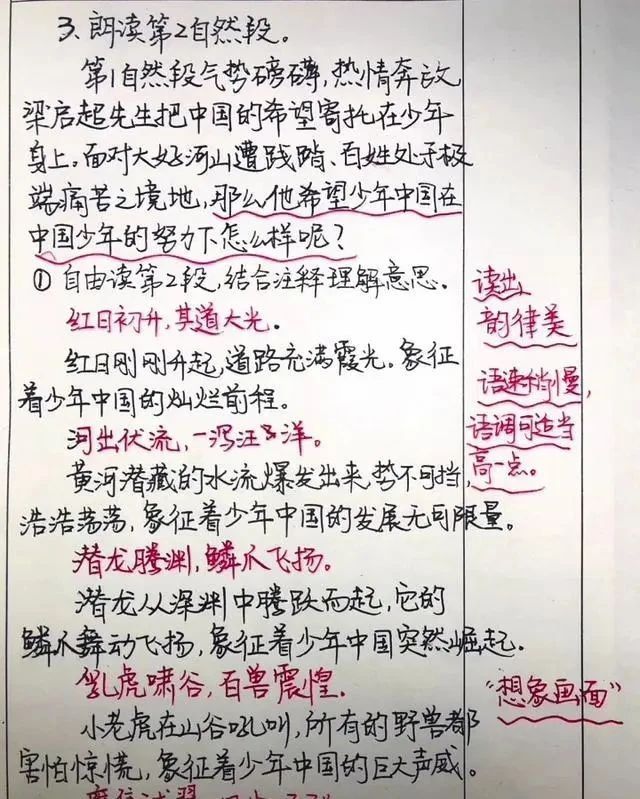 3、朗读第2自然段。
第1自然段气势磅礴,热情奔放
梁启超先生把中国的希望寄托在少年
身上。面对大好河山遭践踏、百姓处于极
端痛苦之境地,那么他希望少年中国在
中国少年的努力下怎么样呢?
① 自由读第2段,结合注释理解意思。
红日初升,其道大光。
红日刚刚升起,道路充满霞光。象征
着少年中国的灿烂前程。
河出伏流,一泻汪洋。
黄河潜藏的水流爆发出来,势不可挡,
浩浩荡荡,象征着少年中国的发展无可限量。
潜龙腾渊,鳞爪飞扬。
潜龙从深渊中腾跃而起,它的
鳞爪舞动飞扬,象征着少年中国突然崛起。
乳虎啸谷,百兽震惶。
小老虎在山谷吼叫,所有的野兽都
害怕惊慌,象征着少年中国的巨大声威。
读出
韵律美
语速稍慢,
语调可适当
高一点。
“想象画面”